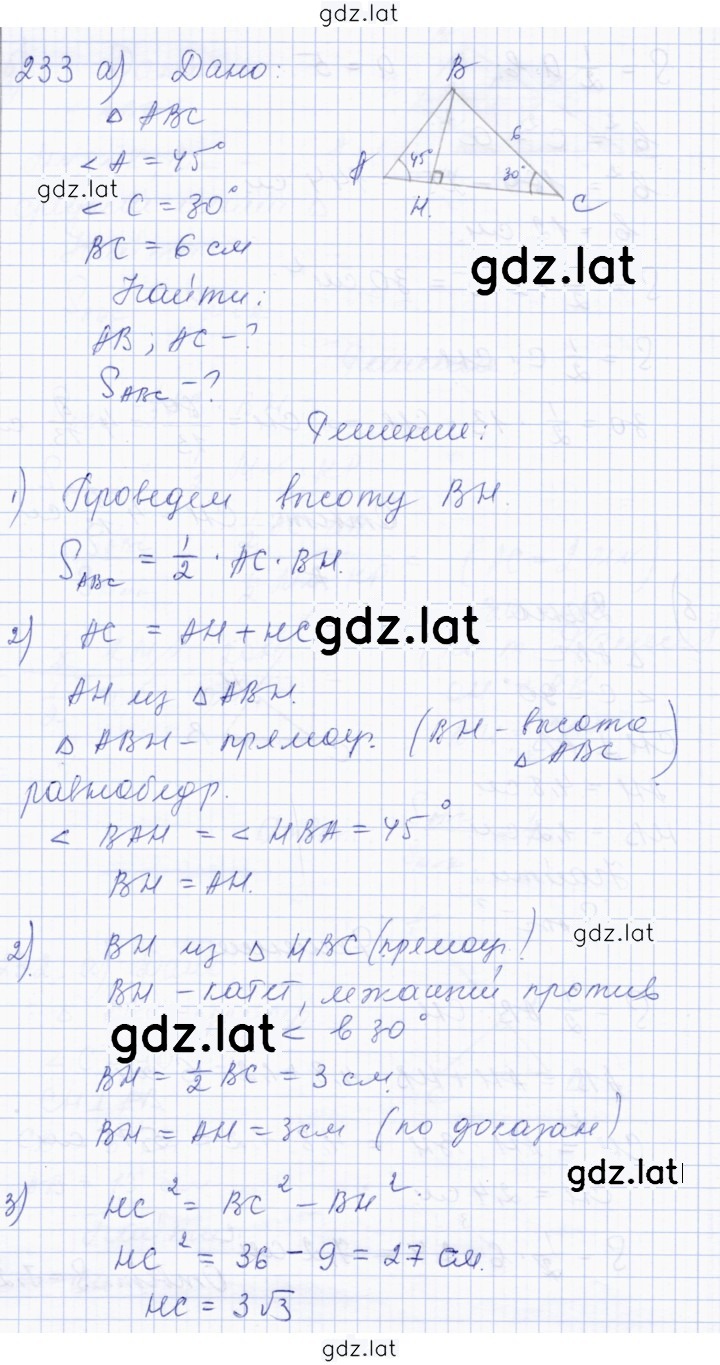 gdz.lat
233 а) Дано:
△ ABC
< A = 45°
gdz.lat
< C = 30°
BC = 6 см
Найти:
AB ; AC - ?
S_ABC - ?
B
6
A
45°
30°
H.
C
gdz.lat
Решение:
1) Проведем высоту BH.
S_ABC = 1/2 · AC · BH.
2) AC = AH + HC
gdz.lat
AH из △ ABH.
△ ABH - прямоуг. (BH - высота △ ABC)
равнобедр.
< BAH = < HBA = 45°
BH = AH.
2). BH из △ HBC (прямоуг.)
gdz.lat
BH - катет, лежащий против
gdz.lat
< в 30°
BH = 1/2 BC = 3 см.
BH = AH = 3см (по доказан)
gdz.lat
3) HC² = BC² - BH².
HC² = 36 - 9 = 27 см.
HC = 3√3
gdz.lat